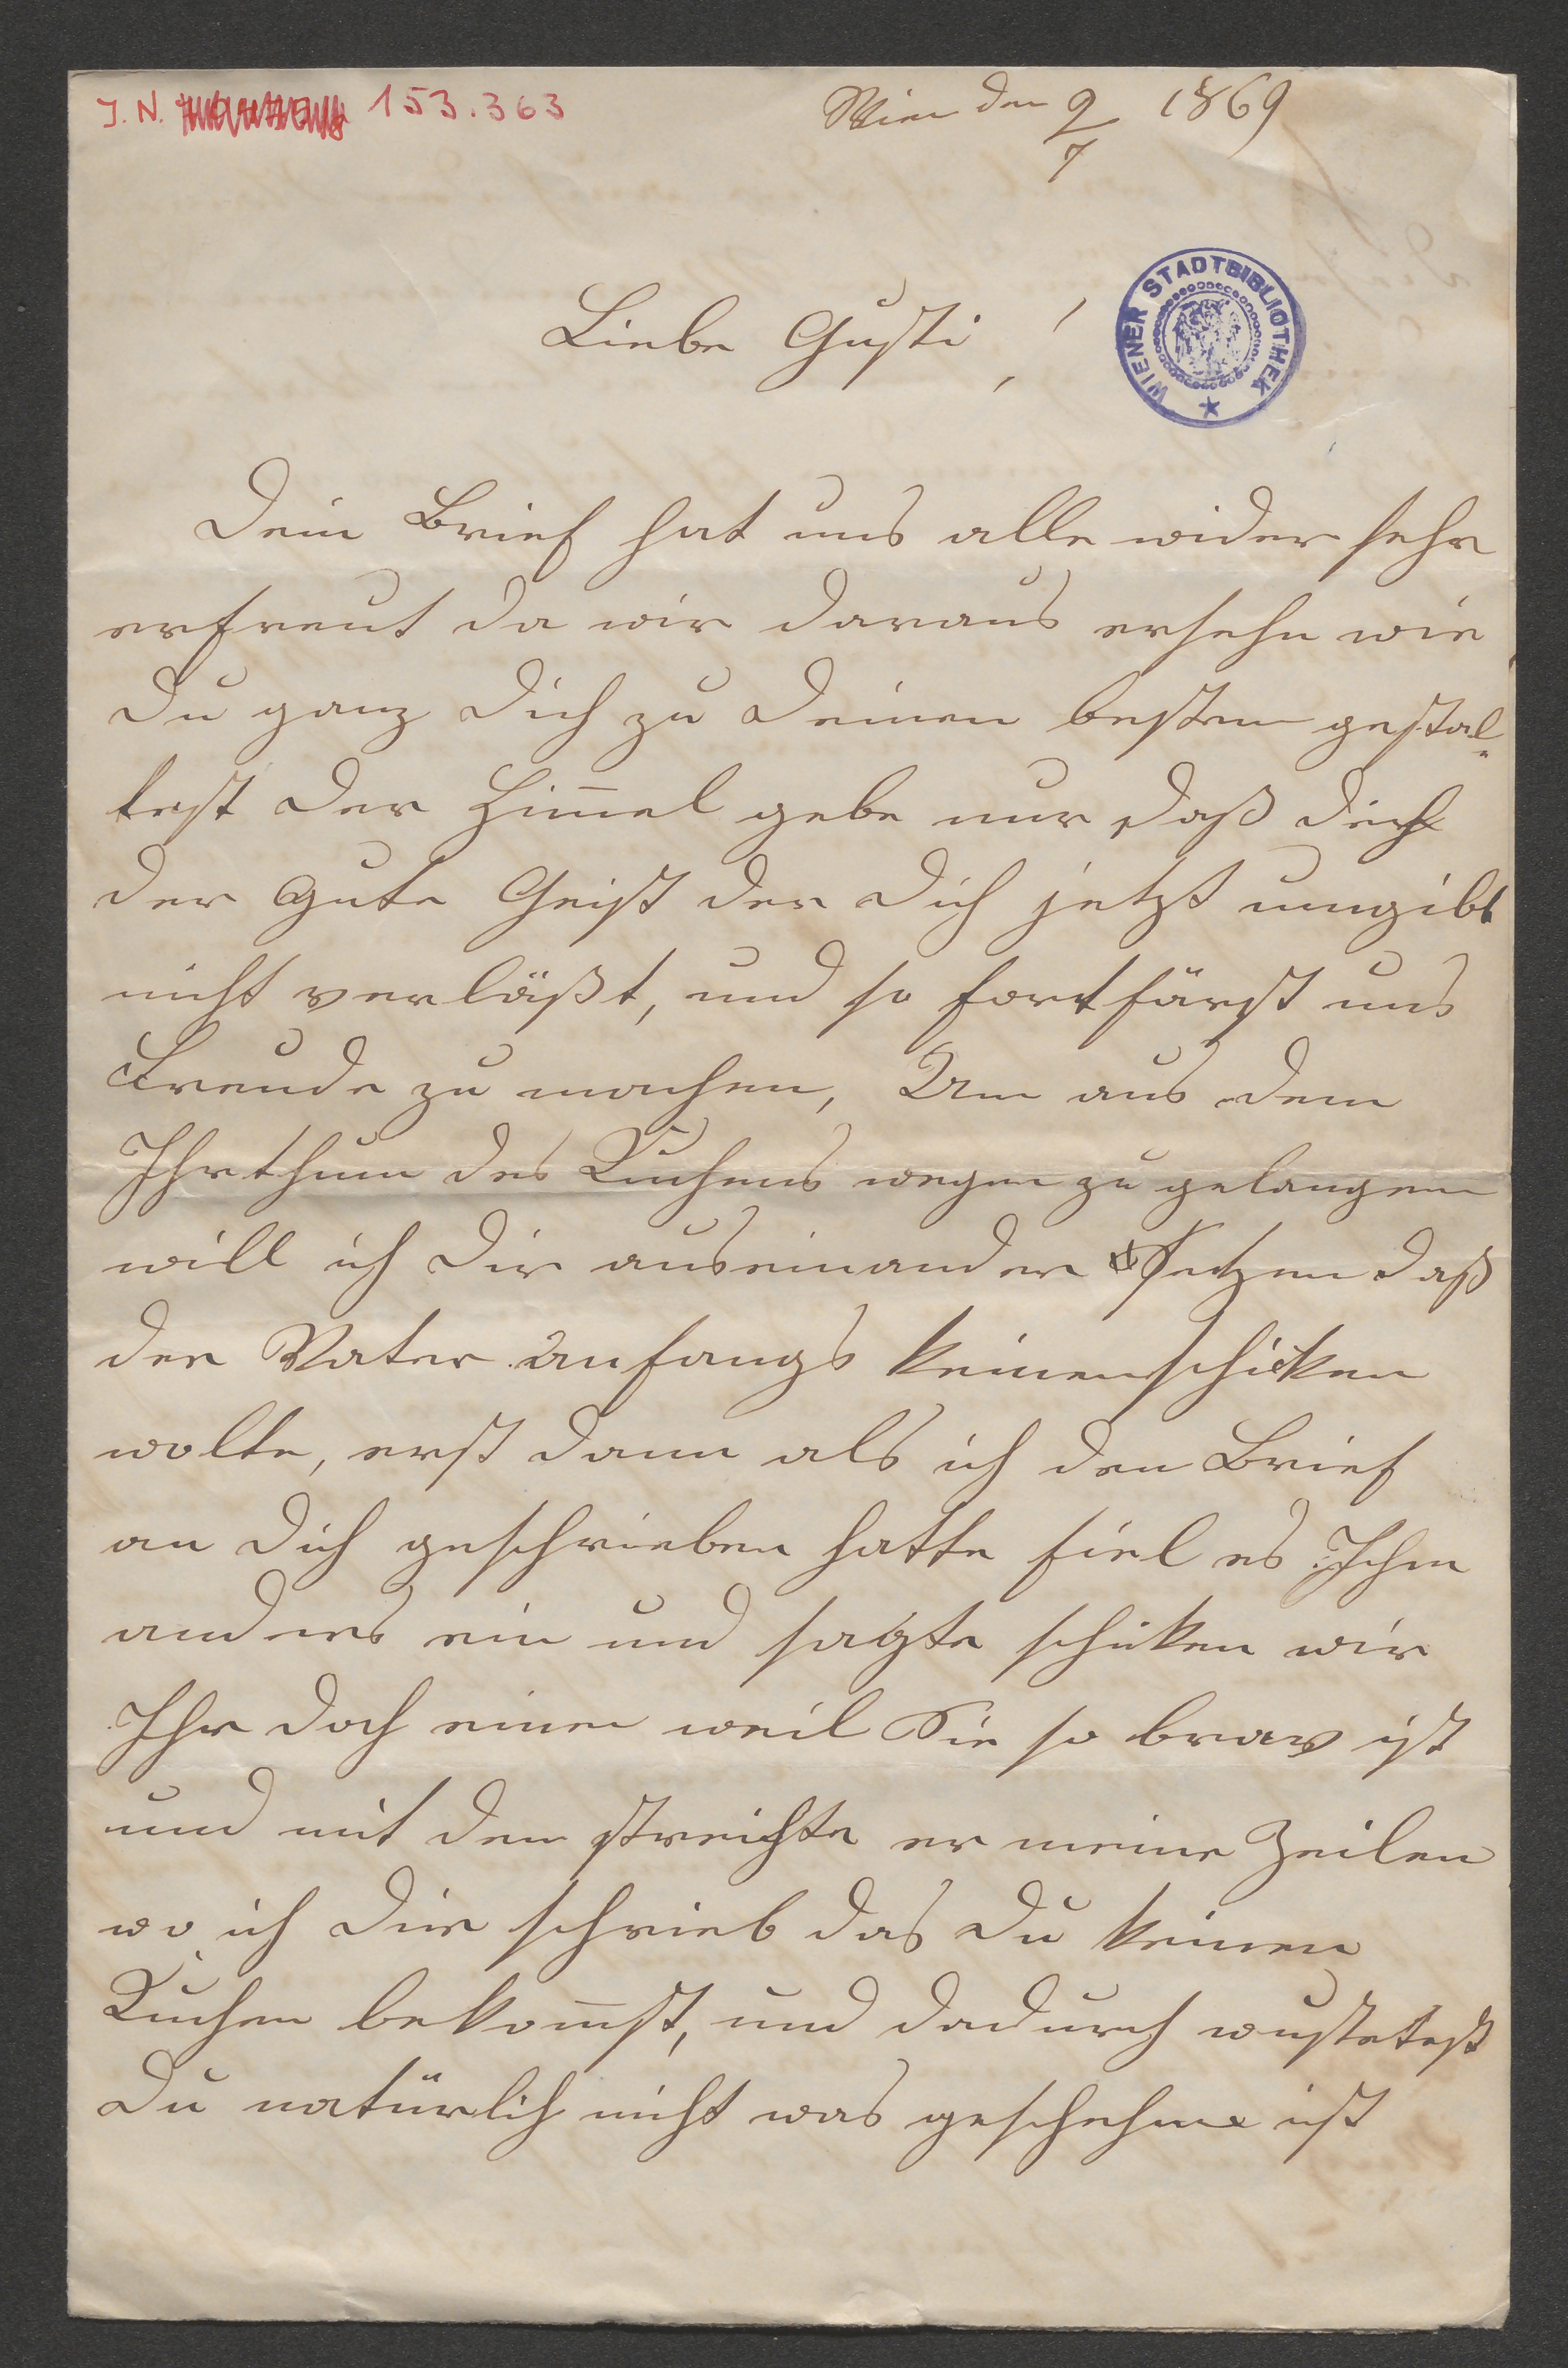 J. N. 153.363
Wien den 9/7 1869
WIENER STADTBIBLIOTHEK
Liebe Gusti!
Dein Brief hat uns alle wider sehr
erfreut da wir daraus ersehn wie
Du ganz Dich zu Deinen besten gestal-
test der Him̅el gebe nur daß Dich
der gute Geist der Dich jetzt umgibt
nicht verläßt, und so fortfärst uns
Freude zu machen, Um aus dem
Ihrthum des Kuchens wegen zu gelangen
will ich Dir auseinander setzen daß
der Vater anfangs keinen schicken
wolte, erst dann als ich den Brief
an Dich geschrieben hatte fiel es Ihm
anders ein und sagte schiken wir
Ihr doch einen weil Sie so brav ist
und mit dem streichte er meine Zeilen
wo ich Dir schrieb das Du keinen
Kuchen bekom̅st, und dadurch wustetest
Du natürlich nicht was geschehen ist